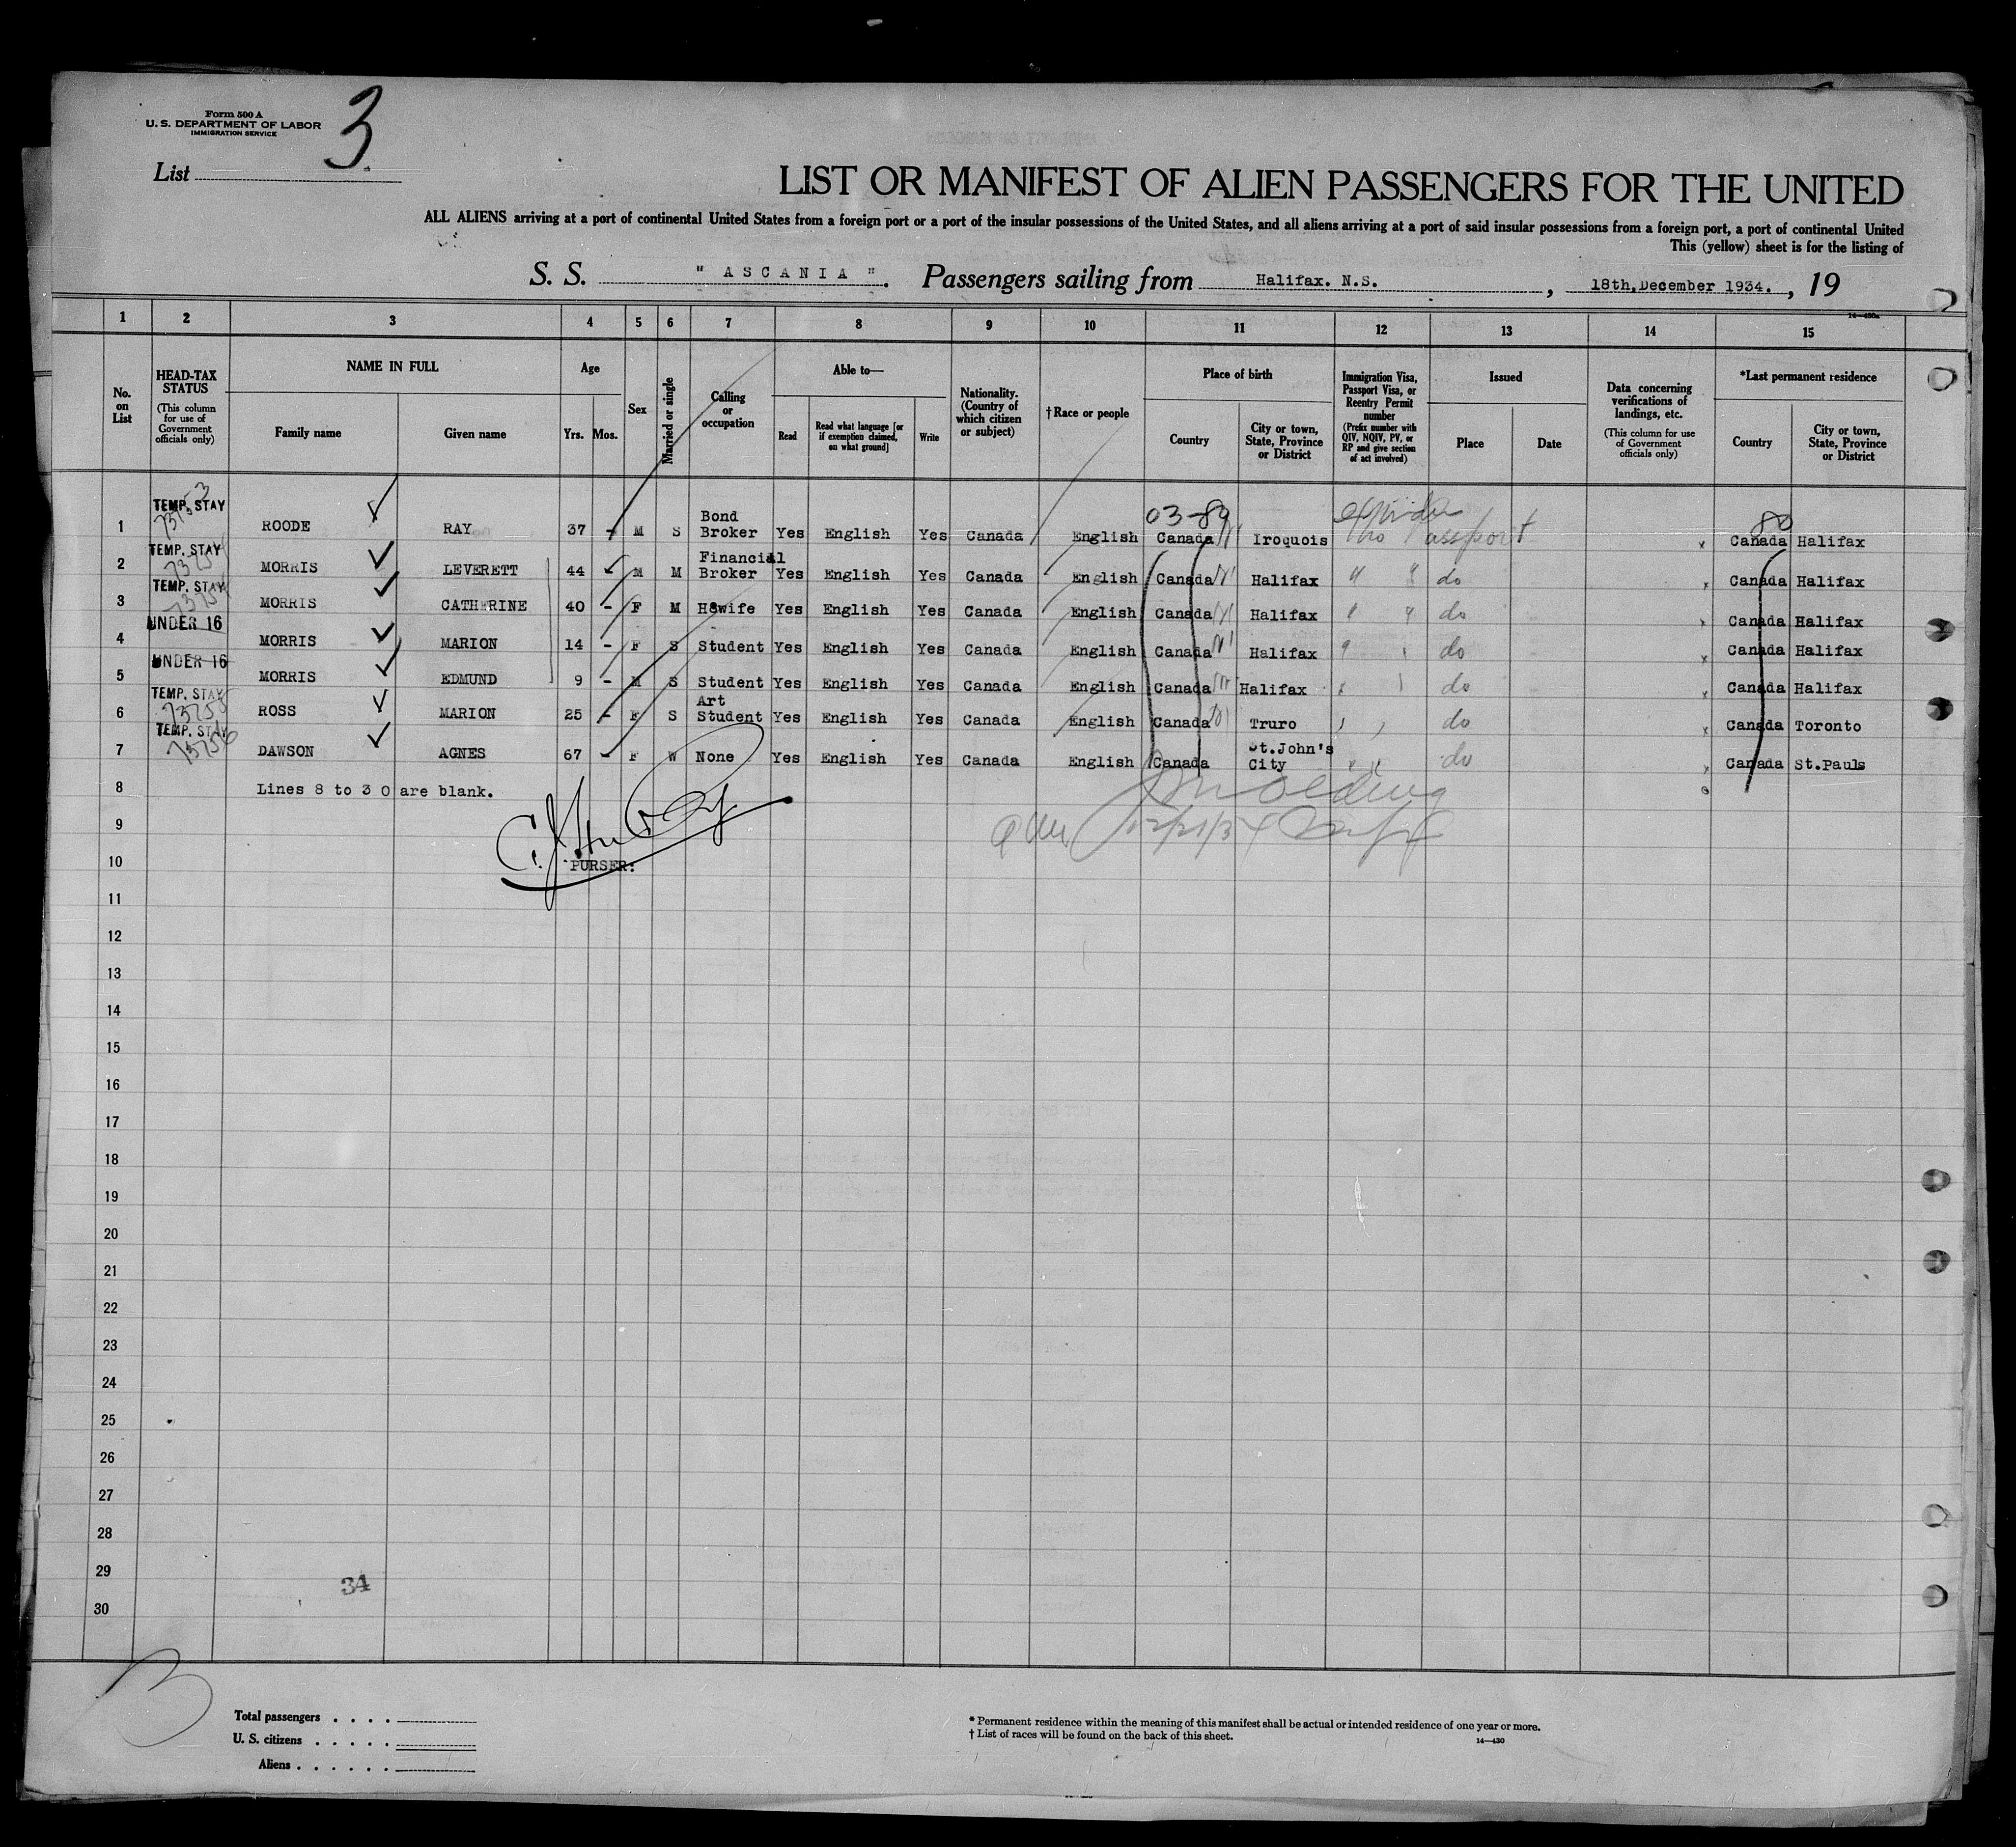 Form 500 A
U. S. DEPARTMENT OF LABOR
IMMIGRATION SERVICE
3
List
LIST OR MANIFEST OF ALIEN PASSENGERS FOR THE UNITED
ALL ALIENS arriving at a port of continental United States from a foreign port or a port of the insular possessions of the United States, and all aliens arriving at a port of said insular possessions from a foreign port, a port of continental United
This (yellow) sheet is for the listing of
S. S. " ASCANIA ". Passengers sailing from Halifax. N.S. , 18th.December 1934. , 19
14—430a
1 2 3 4 5 6 7 8 9 10 11 12 13 14 15
No. on List
HEAD-TAX STATUS
(This column for use of Government officials only)
NAME IN FULL
Family name Given name
Age
Yrs. Mos.
Sex
Married or single
Calling or occupation
Able to—
Read
Read what language [or if exemption claimed, on what ground]
Write
Nationality. (Country of which citizen or subject)
† Race or people
Place of birth
Country
City or town, State, Province or District
Immigration Visa, Passport Visa, or Reentry Permit number
(Prefix number with QIV, NQIV, PV, or RP and give section of act involved)
Issued
Place Date
Data concerning verifications of landings, etc.
(This column for use of Government officials only)
*Last permanent residence
Country
City or town, State, Province or District
03-89
80
1 TEMP. STAY ROODE RAY 37 - M S Bond Broker Yes English Yes Canada English Canada Iroquois no Passport Canada Halifax
2 TEMP. STAY MORRIS LEVERETT 44 - M M Financial Broker Yes English Yes Canada English Canada Halifax " " do Canada Halifax
3 TEMP. STAY MORRIS CATHERINE 40 - F M HSwife Yes English Yes Canada English Canada Halifax do Canada Halifax
4 UNDER 16 MORRIS MARION 14 - F S Student Yes English Yes Canada English Canada Halifax do Canada Halifax
5 UNDER 16 MORRIS EDMUND 9 - M S Student Yes English Yes Canada English Canada Halifax do Canada Halifax
6 TEMP. STAY ROSS MARION 25 - F S Art Student Yes English Yes Canada English Canada Truro do Canada Toronto
7 TEMP. STAY 73756 DAWSON AGNES 67 - F W None Yes English Yes Canada English Canada St.John's City do Canada St.Pauls
8 Lines 8 to 30 are blank.
9
12/21/34
10 PURSER:
11
12
13
14
15
16
17
18
19
20
21
22
23
24
25
26
27
28
29
34
30
3
Total passengers . . . .
U. S. citizens . . . . .
Aliens . . . . . .
* Permanent residence within the meaning of this manifest shall be actual or intended residence of one year or more.
† List of races will be found on the back of this sheet.
14—430